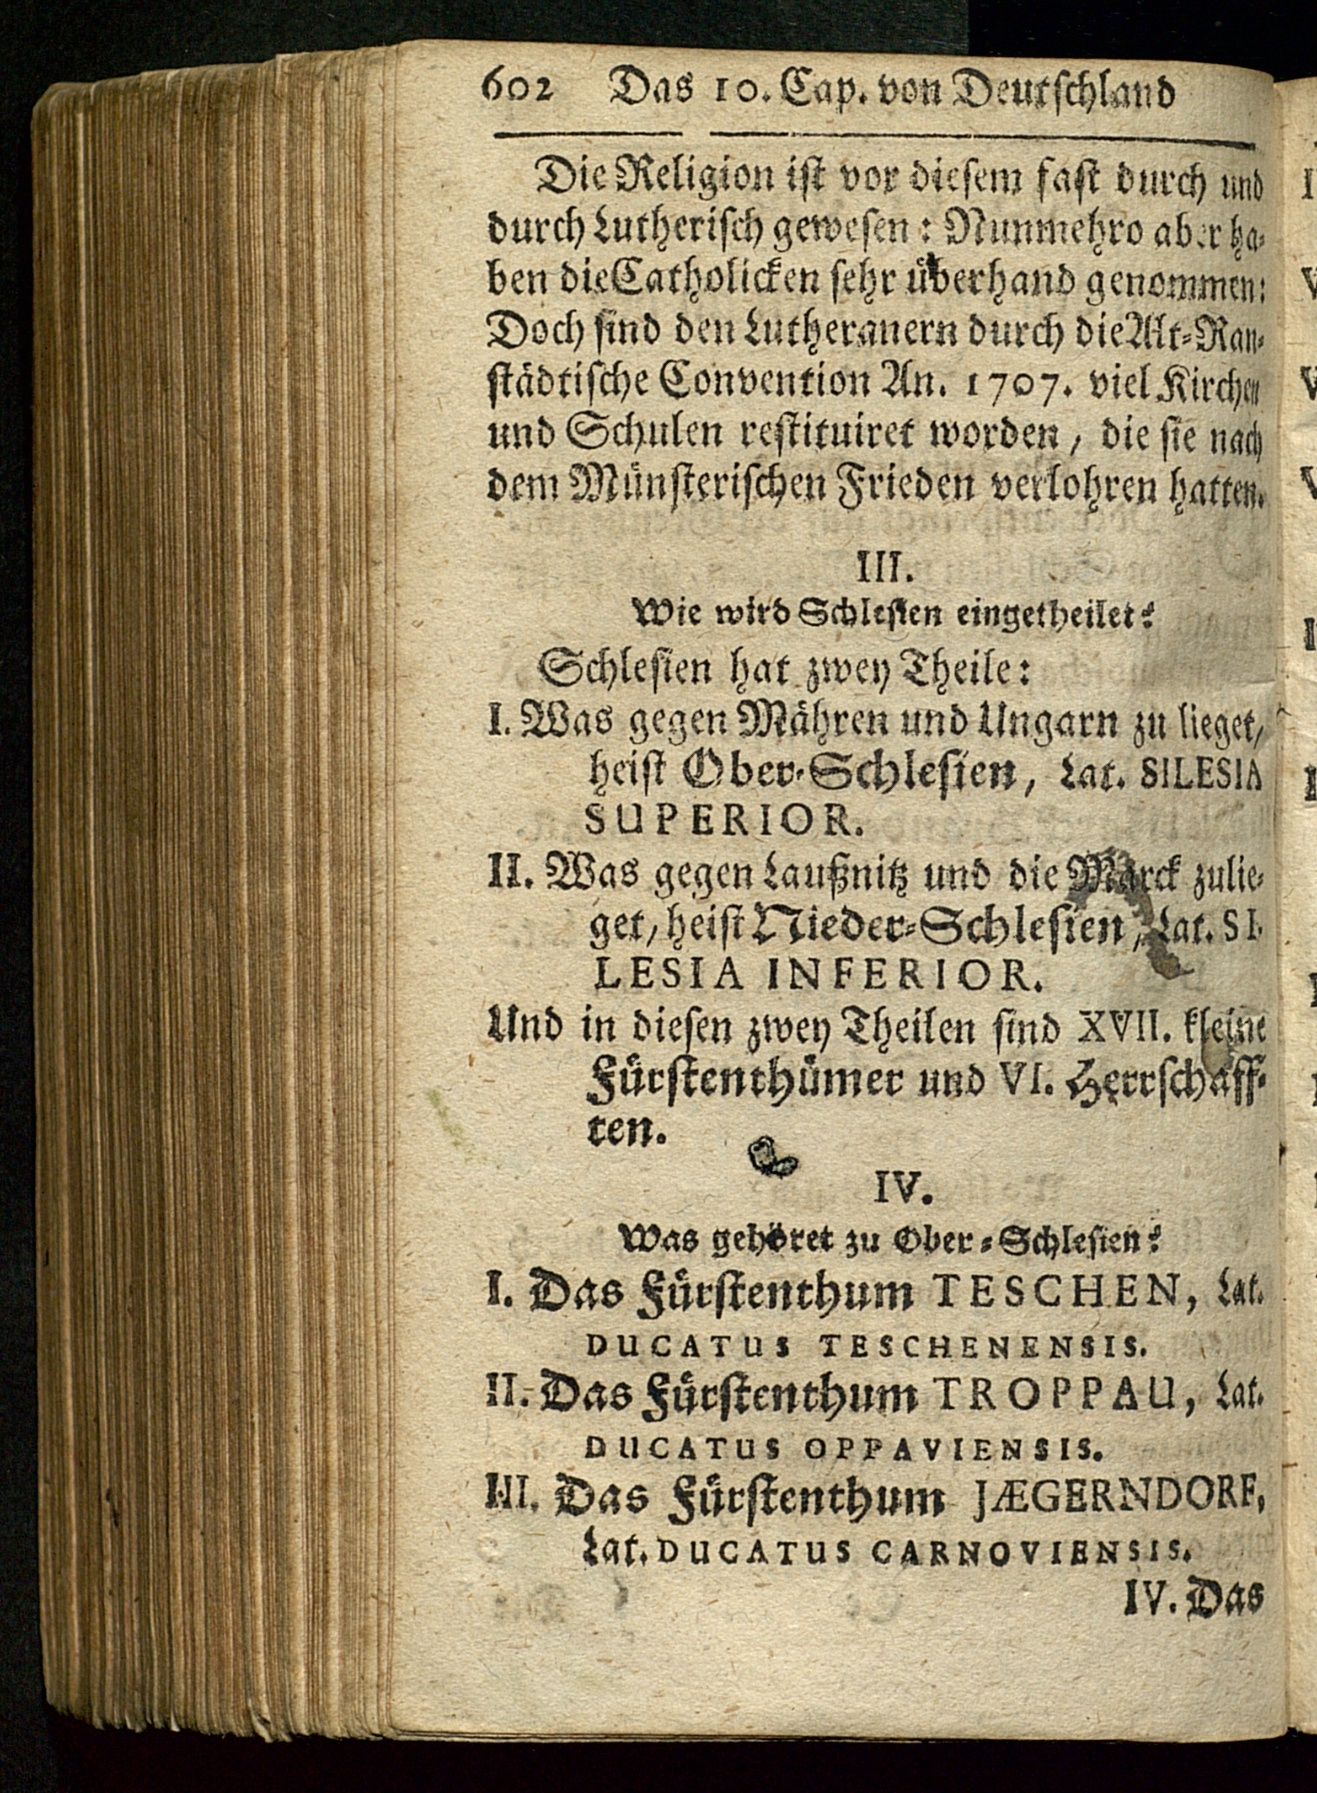 602 Das 10. Cap. von Deutschland
Die Religion ist vor diesem fast durch und
durch Lutherisch gewesen: Nunmehro aber ha-
ben die Catholicken sehr überhand genommen:
Doch sind den Lutheranern durch die Alt-Ran-
städtische Convention An. 1707. viel Kirchen
und Schulen restituiret worden, die sie nach
dem Münsterischen Frieden verlohren hatten.
III.
Wie wird Schlesien eingetheilet?
Schlesien hat zwey Theile:
I. Was gegen Mähren und Ungarn zu lieget,
heist Ober-Schlesien, Lat. SILESIA
SUPERIOR.
II. Was gegen Laußnitz und die Marck zulie-
get, heist Nieder-Schlesien, Lat. SI-
LESIA INFERIOR.
Und in diesen zwey Theilen sind XVII. kleine
Fürstenthümer und VI. Herrschaff-
ten.
IV.
Was gehöret zu Ober-Schlesien?
I. Das Fürstenthum TESCHEN, Lat.
DUCATUS TESCHENENSIS.
II. Das Fürstenthum TROPPAU, Lat.
DUCATUS OPPAVIENSIS.
III. Das Fürstenthum JÆGERNDORF,
Lat. DUCATUS CARNOVIENSIS.
IV. Das